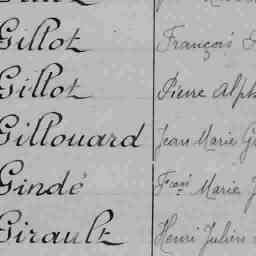 Gillot François
Gillot Pierre Alph
Gillouard Jean Marie
Gindé Fçois Marie
Girault Henri Julien